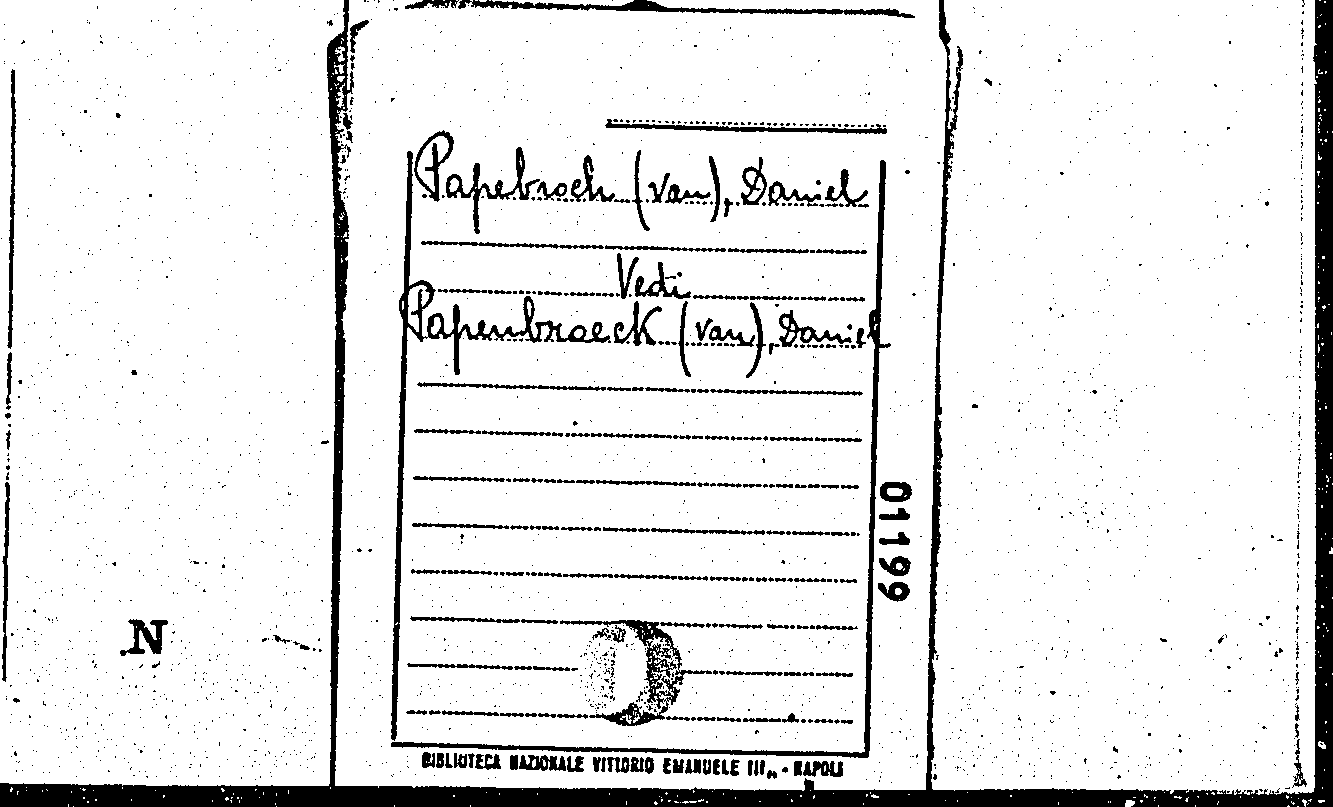 Papebroch (van), Daniel
Vedi
Papenbroeck (van), Daniel
01199
N
BIBLIOTECA NAZIONALE VITTORIO EMANUELE III„ - NAPOLI